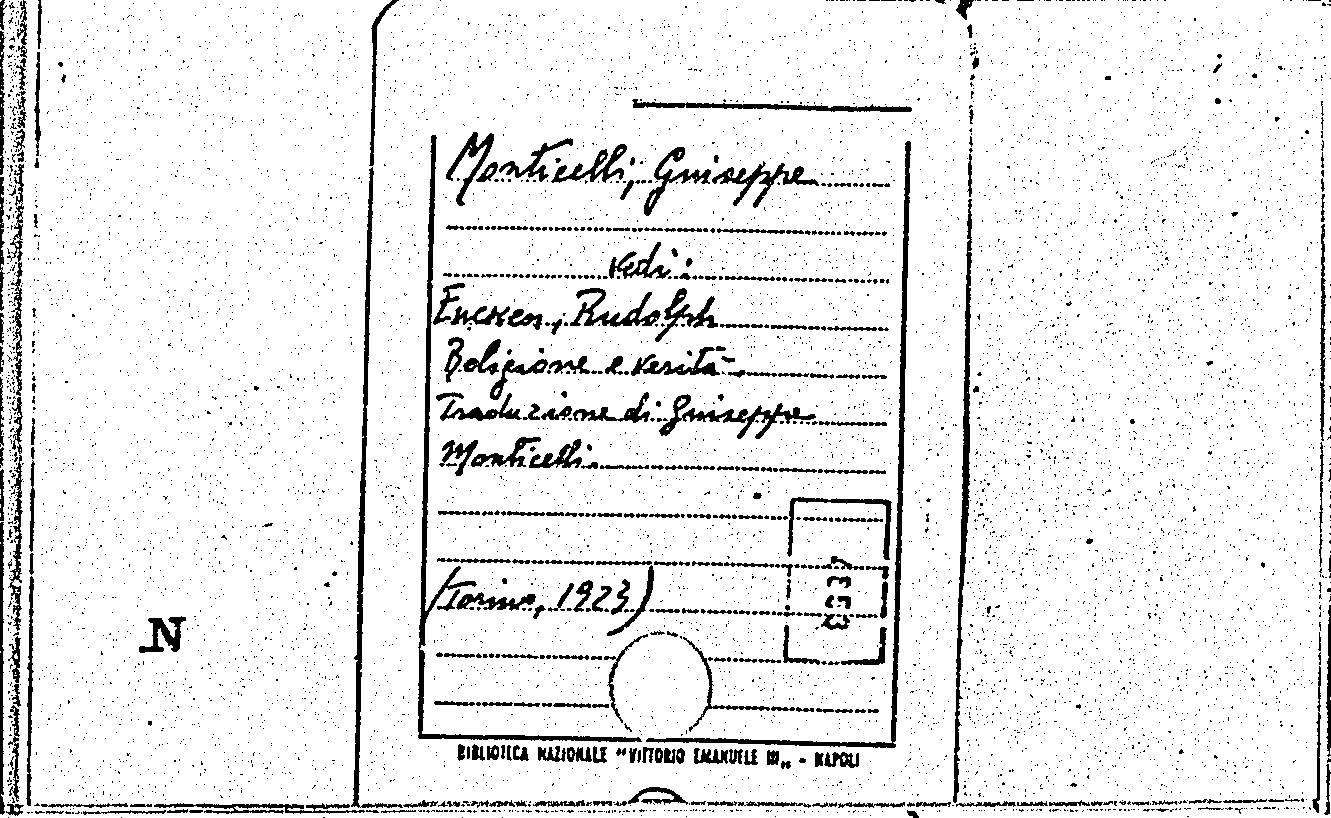 Monticelli, Giuseppe
vedi:
Eucken, Rudolph
Religione e verità.
Traduzione di Giuseppe
Monticelli.
(Torino, 1923)
N
BIBLIOTECA NAZIONALE "VITTORIO EMANUELE III„ - NAPOLI